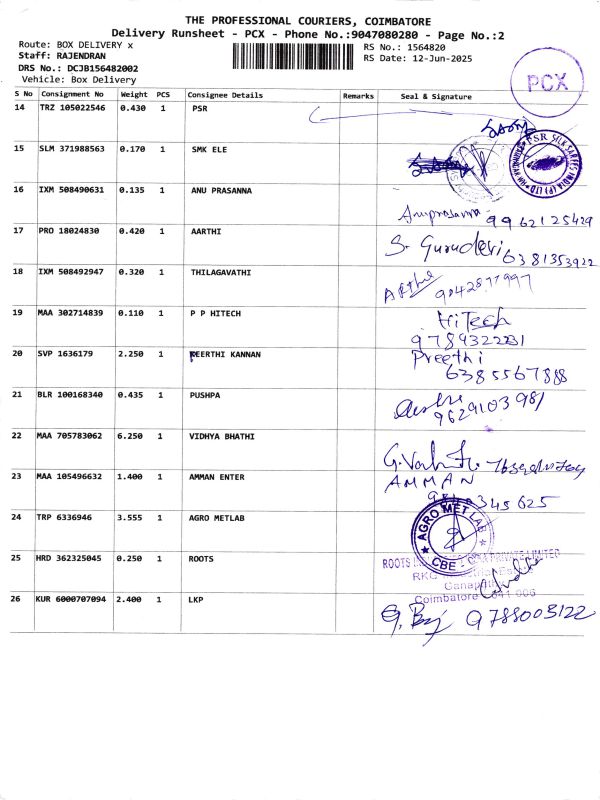 THE PROFESSIONAL COURIERS, COIMBATORE
Delivery Runsheet - PCX - Phone No.:9047080280 - Page No.:2
Route: BOX DELIVERY x
Staff: RAJENDRAN
DRS No.: DCJB156482002
Vehicle: Box Delivery
RS No.: 1564820
RS Date: 12-Jun-2025
PCX
S No Consignment No Weight PCS Consignee Details Remarks Seal & Signature
14 TRZ 105022546 0.430 1 PSR
15 SLM 371988563 0.170 1 SMK ELE
PSR SILK SAREES INDIA (P) LTD
16 IXM 508490631 0.135 1 ANU PRASANNA
Anuprasanna 9962125429
17 PRO 18024830 0.420 1 AARTHI
S. Gurudevi 6381353922
18 IXM 508492947 0.320 1 THILAGAVATHI
9042877997
19 MAA 302714839 0.110 1 P P HITECH
HiTech
9789322231
20 SVP 1636179 2.250 1 PEERTHI KANNAN
Preethi
6385567888
21 BLR 100168340 0.435 1 PUSHPA
9629103981
22 MAA 705783062 6.250 1 VIDHYA BHATHI
23 MAA 105496632 1.400 1 AMMAN ENTER
AMMAN
345625
24 TRP 6336946 3.555 1 AGRO METLAB
AGRO MET LAB
CBE
25 HRD 362325045 0.250 1 ROOTS
ROOTS PRIVATE LIMITED
Coimbatore 641 006
26 KUR 6000707094 2.400 1 LKP
9788003122